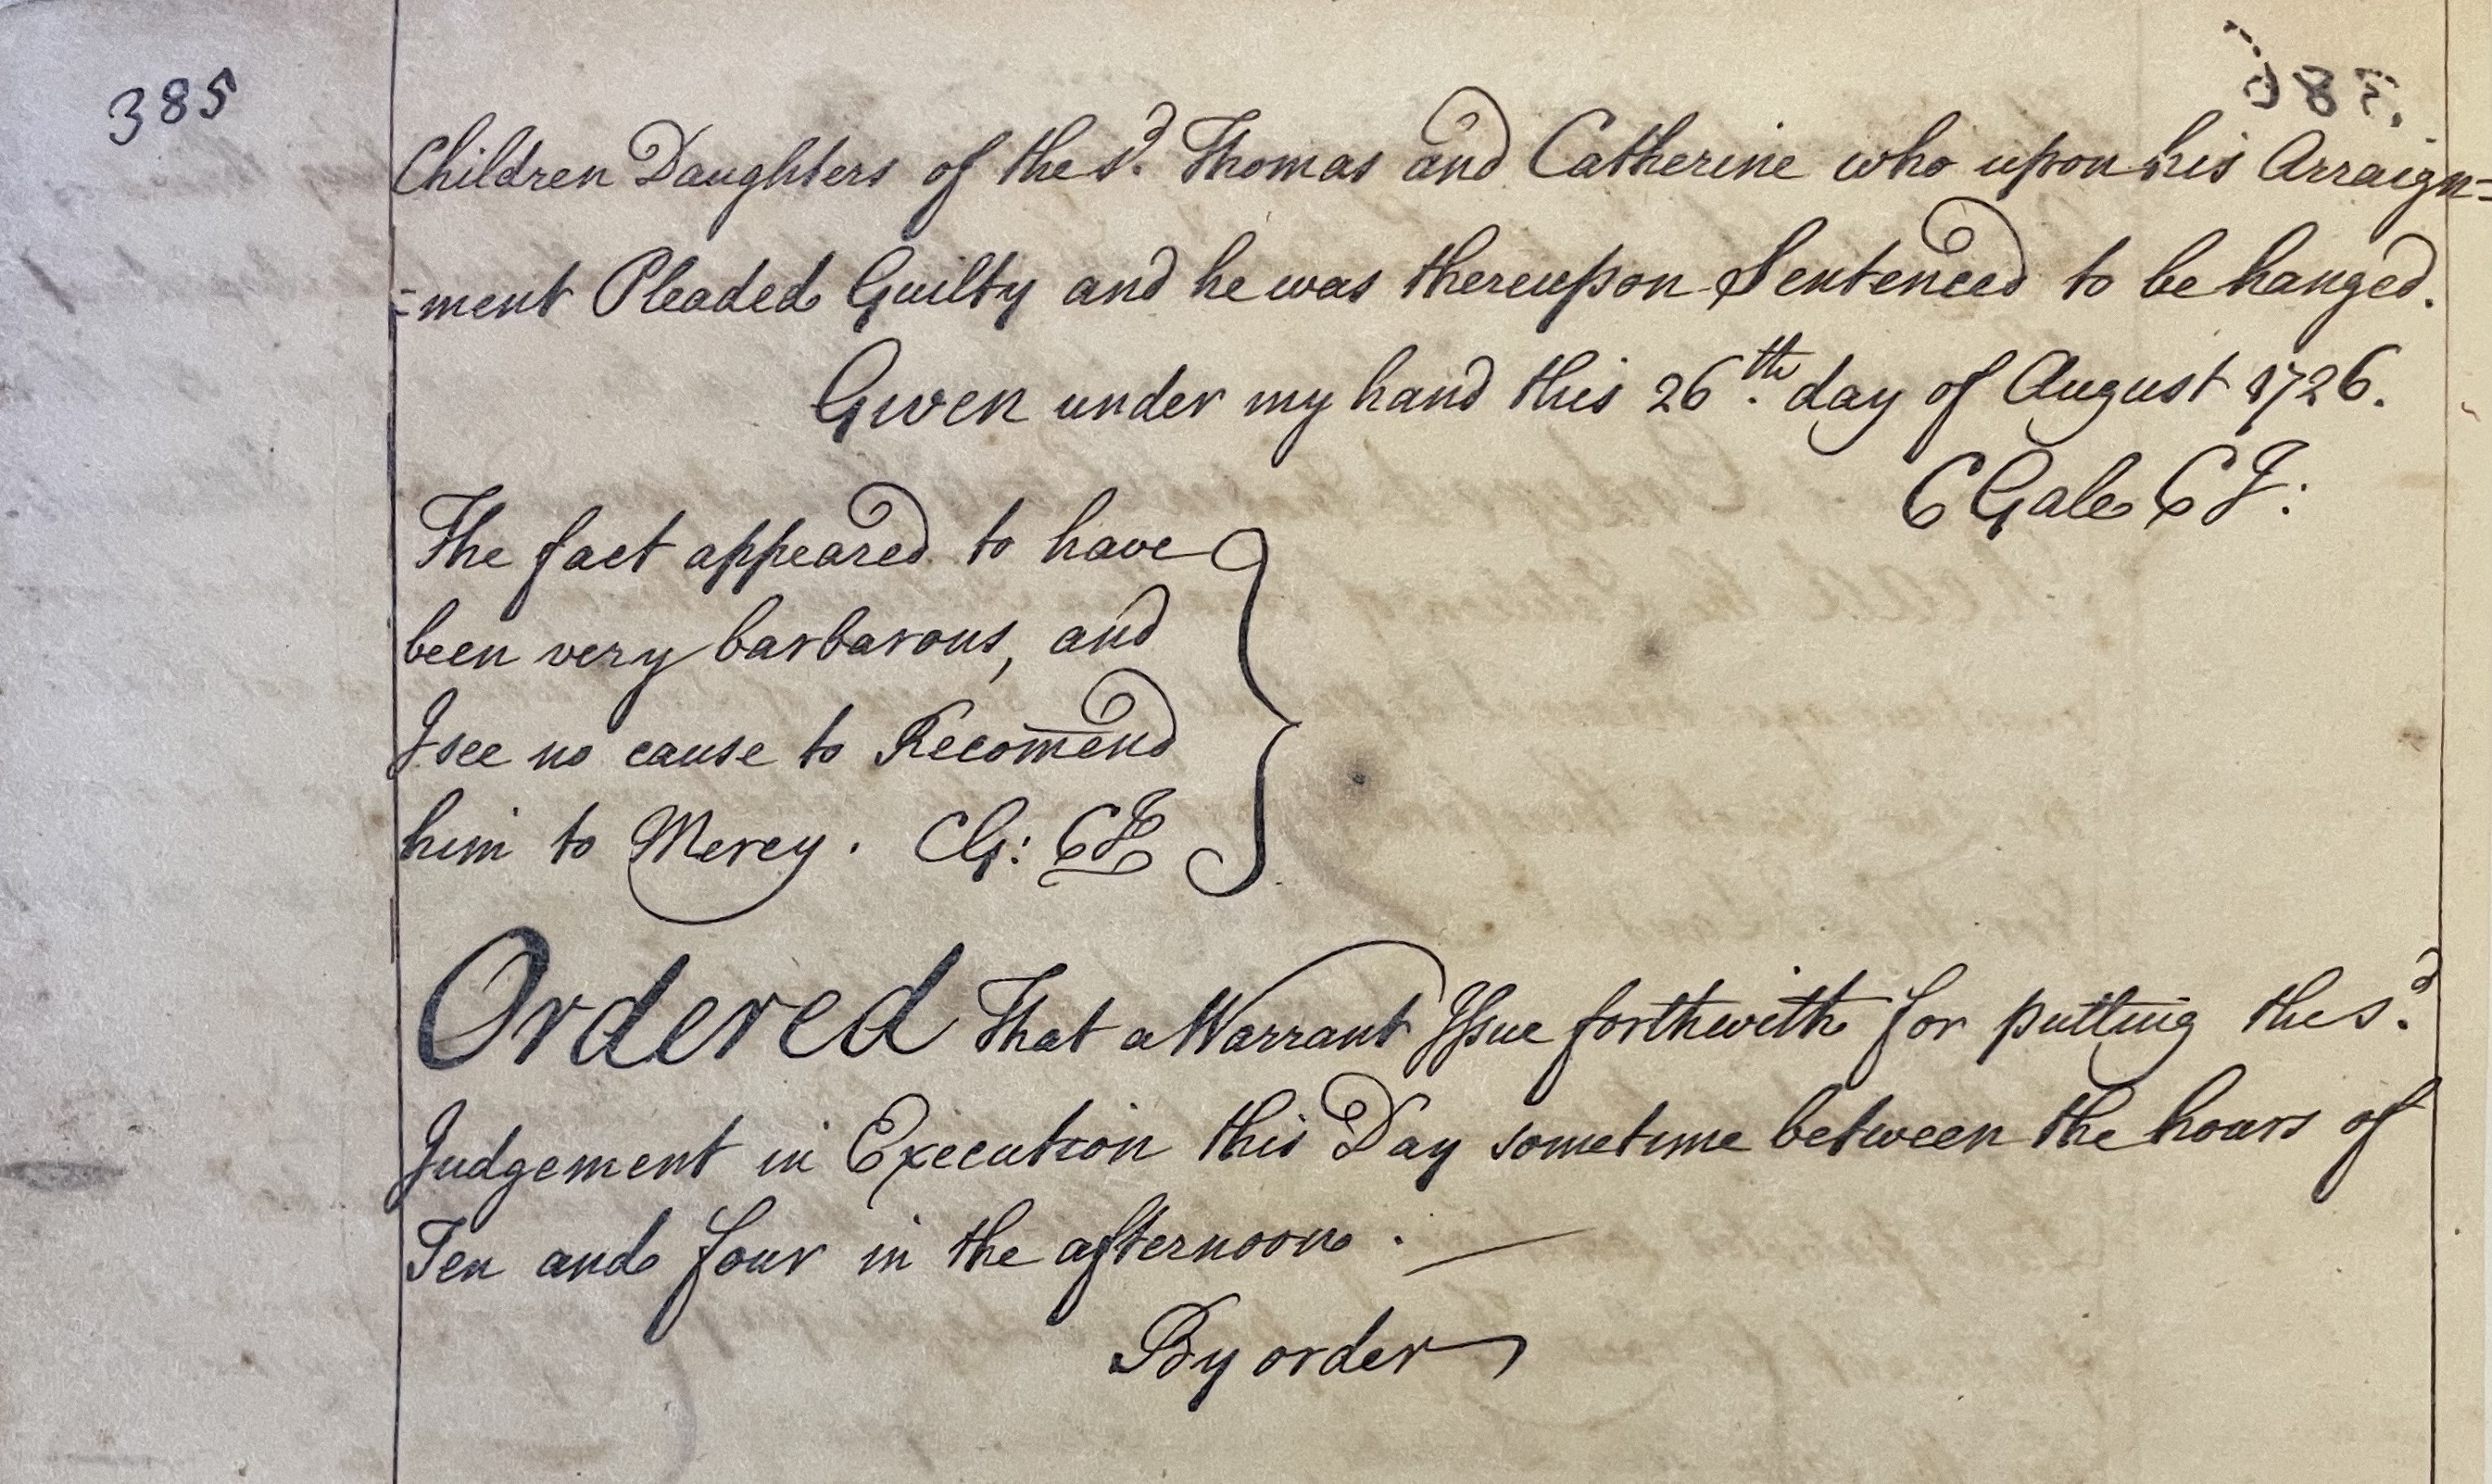 385
Children Daughters of the sd. Thomas and Catherine who upon his Arraign=
=ment Pleaded Guilty and he was thereupon Sentenced to be hanged.
Given under my hand this 26th. day of August 1726.
C Gale CJ:
The fact appeared to have
been very barbarous, and
I see no cause to Recom̅end
him to Mercy. CG: CJ
Ordered That a Warrant Issue forthwith for putting the sd.
Judgement in Execution this Day sometime between the hours of
Ten and four in the afternoon. —
By order